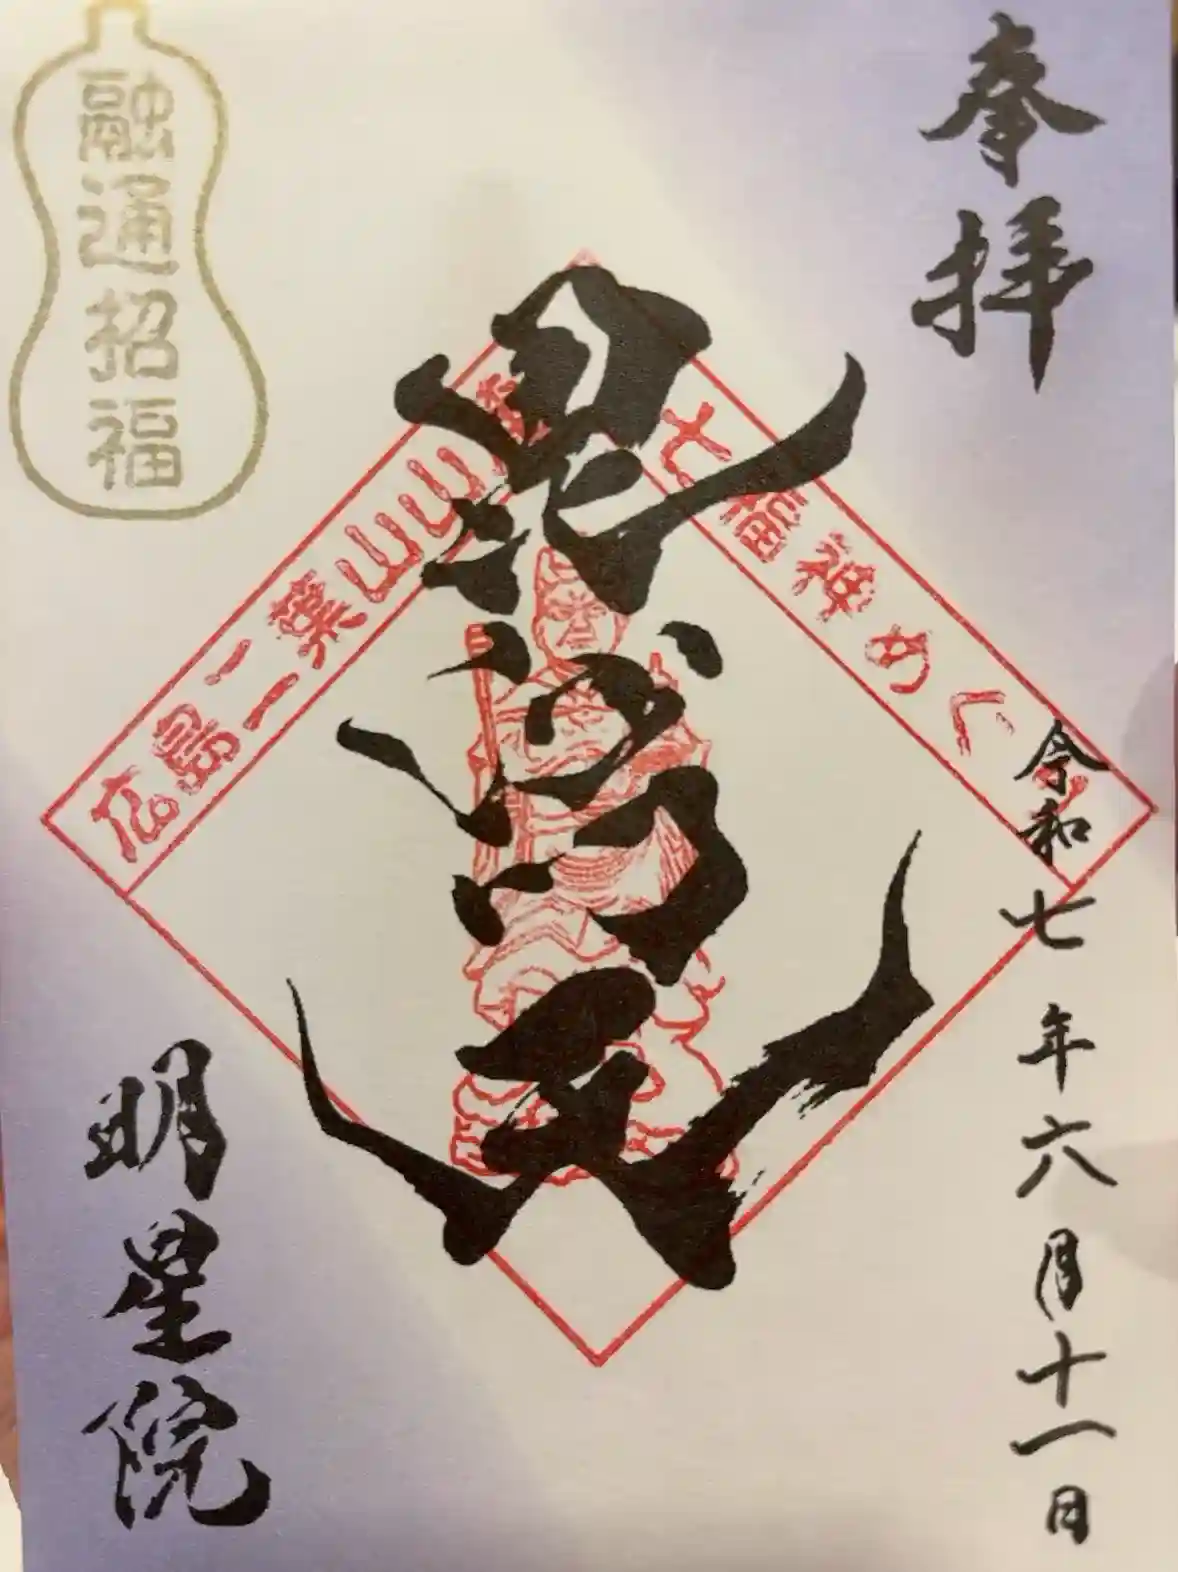 奉拝
令和七年六月十一日
七福神めぐり
毘沙門天
広島二葉山山麓
融通招福
明星院